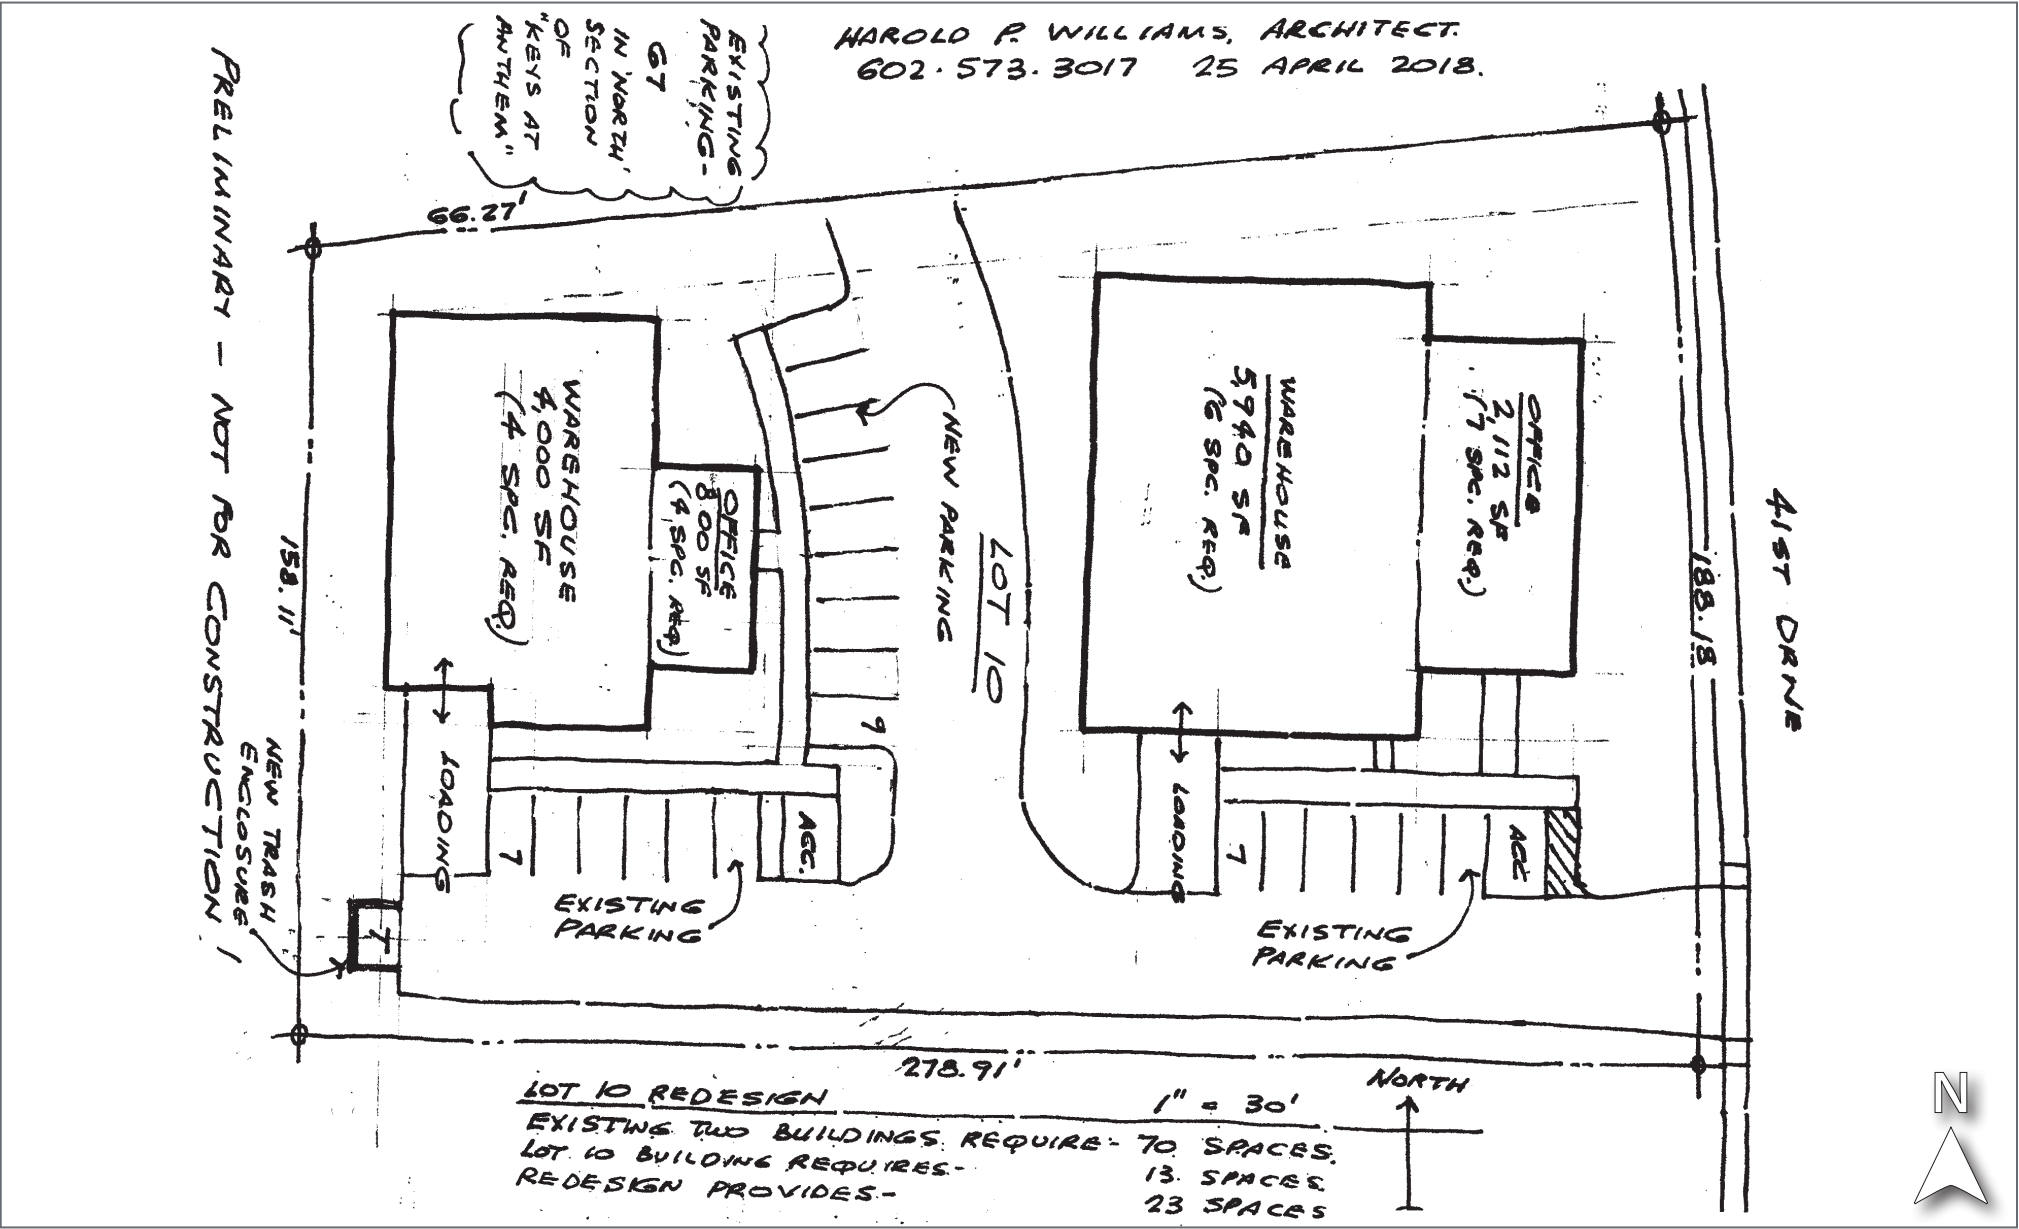 HAROLD P. WILLIAMS, ARCHITECT.
602.573.3017 25 APRIL 2018.
EXISTING
PARKING-
67
IN 'NORTH'
SECTION
OF
"KEYS AT
ANTHEM"
PRELIMINARY - NOT FOR CONSTRUCTION!
66.27'
158.11'
WAREHOUSE
4,000 SF
(4 SPC. REQ.)
OFFICE
800 SF
(4 SPC. REQ.)
NEW PARKING
LOT 10
9
WAREHOUSE
5,940 SF
(6 SPC. REQ.)
OFFICE
2,112 SF
(7 SPC. REQ.)
41ST DRIVE
188.18
LOADING
7
ACC.
EXISTING
PARKING
LOADING
7
ACC
EXISTING
PARKING
NEW TRASH
ENCLOSURE
T
278.91'
NORTH
N
LOT 10 REDESIGN 1" = 30'
EXISTING TWO BUILDINGS REQUIRE- 70 SPACES.
LOT 10 BUILDING REQUIRES.- 13. SPACES.
REDESIGN PROVIDES.- 23 SPACES